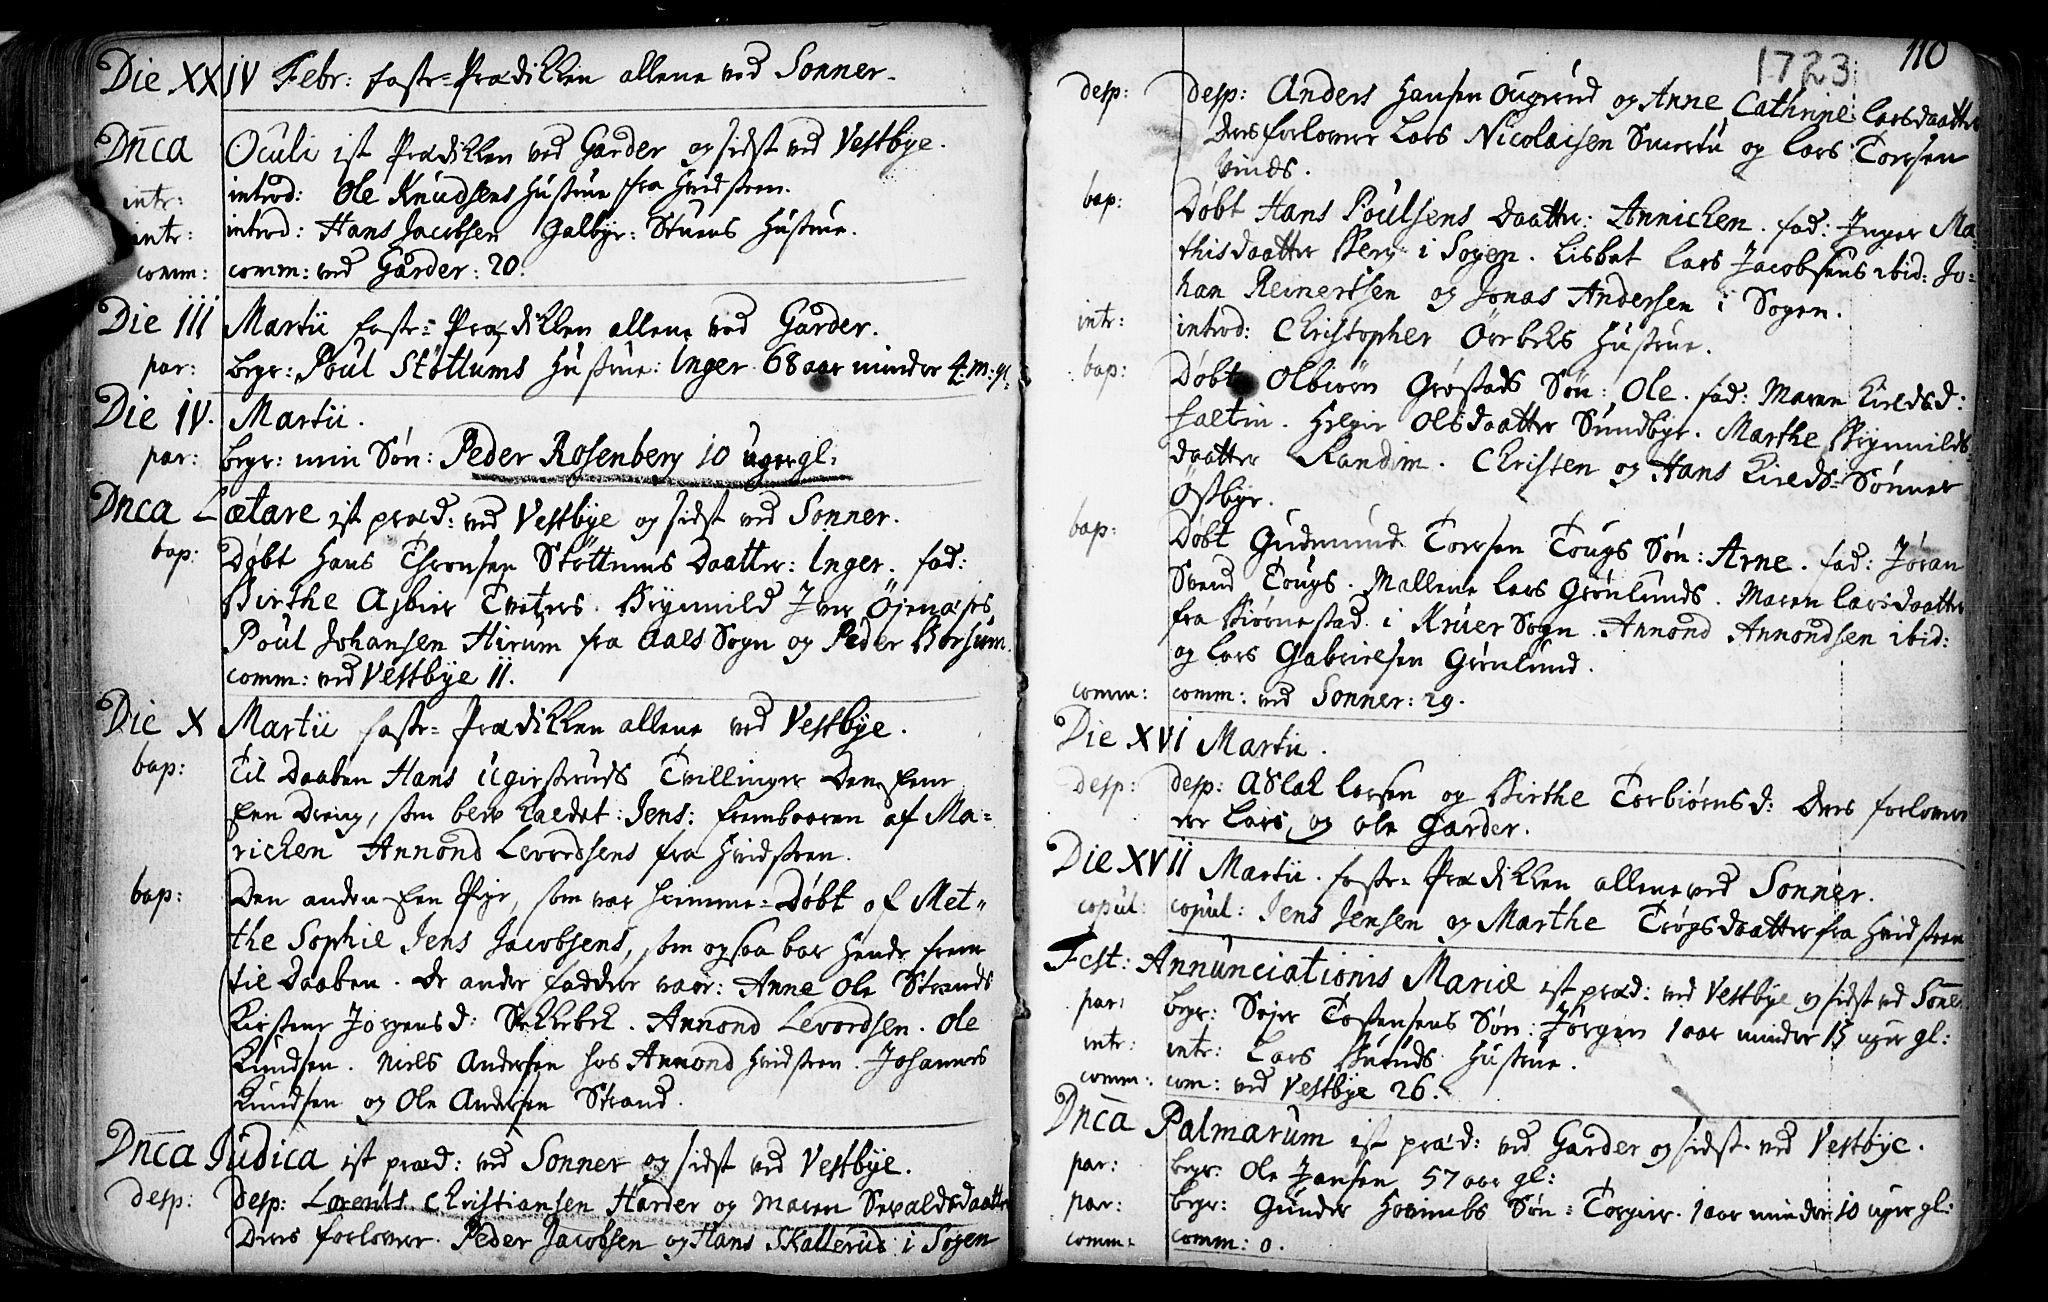 Die XXIV Febr: faste-Prædikken allene ved Sonner.
Dn̄ca Oculi ist Prædikken ved Garder og sidst ved Vestbye.
intr: introd: Ole Knudsens Hustrue fra Hvidsteen.
intr: introd: Hans Jacobsen Galbye-Stuens Hustrue.
comm: comm: ved Garder: 20.
Die III Martii faste-Prædikken allene ved Garder.
par: begr: Poul Støttums Hustrue: Inger 68 aar minder 4 m: gl:
Die IV. Martii.
par: begr: min Søn: Peder Rosenberg 10 uger gl:
Dnca Lætare ist præd: ved Vestbye og sidst ved Sonner.
bap: Døbt Hans Thronsen Støttums Daatter: Inger. fad:
Birthe Asbiør Tveters. Brynnild Iver Øjenæses
Poul Johansen Hirum fra Aaes Sogn og Peder Borsum.
comm: ved Vestbye 11.
Die X Martii faste-Prædikken allene ved Vestbye.
bap: Til Daaben Hans Ugierstruds Tvillinger Den Eene
Een Dreng, som blev kaldet: Jens: frembaaren af Ma-
richen Annond Levordsens fra Hvidsteen.
bap: Den anden Een Pige, som var hiemme-Døbt af Met-
the Sophie Jens Jacobsens, som ogsaa bar Hende frem
til Daaben. De andre faddere vaar: Anne Ole Strands
Kirstine Jørgensd: Annond Levordsen. Ole
Knudsen. Niels Andersen hos Annond Hvidsteen. Johannes
Knudsen og Ole Andersen Strand.
Dn̄ca Judica ist præd: ved Sonner og sidst ved Vestbye.
desp: desp: Lorents Christiansen Harder og Maren Sevaldsdaatter
Deres forlover. Peder Jacobsen og Hans Skallerud i Sogen
1723. 110
desp: desp: Anders Hansen Ougrund og Anne Cathrine Larsdaatter
Deres forlover Lars Nicolaisen og Lars Torersen
Vinds.
bap: Døbt Hans Poulsens Daatter: Annichen. fad: Inger Ma-
thisdaatter Berg i Sogen. Lisbet Lars Jacobsens ibid: Jo-
han Reinertsen og Jonas Andersen i Sogen.
intr: introd: Christopher Örebeks Hustrue.
bap: Døbt Olbiørn Grøstads Søn: Ole. fad: Maren Kieldsd:
Saltin. Helgie Olsdaatter Sundbye. Marthe Brynnilds-
daatter Randim. Christen og Hans Kields-Sønner
Østbye.
bap: Døbt Gudmund Torersen Tougs Søn: Arne. fad: Jøran
Svend Tougs. Mallene Lars Grønlunds. Maren Larsdaatter
fra Biørnestad i Kruer Sogn. Annond Annondsen ibid:
og Lars Gabrielsen Grønlund.
comm: comm: ved Sonner: 29.
Die XVI Martii.
desp: desp: Aslak Larsen og Birthe Torbiørnsd: Deres forlover
ere Lars, og Ole Garder.
Die XVII Martii. faste-Prædikken allene ved Sonner.
copul: copul: Jens Jensen og Marthe Trøgsdaatter fra Hvidsteen
Fest: Annunciationis Mariæ ist præd: ved Vestbye og sidst ved Son̄er
par: begr: Sejer Tostensens Søn: Jørgen 1 aar minder 15 uger gl:
intr: intr: Lars Bruuds Hustrue.
comm: com: ved Vestbye 26.
Dn̄ca Palmarum ist præd: ved Garder og sidst ved Vestbye.
par: begr: Ole Jansen 57 aar gl:
par: begr: Gunder Hovimbs Søn: Torgier. 1 aar minder 10 uger gl:
comm: comm: 0.